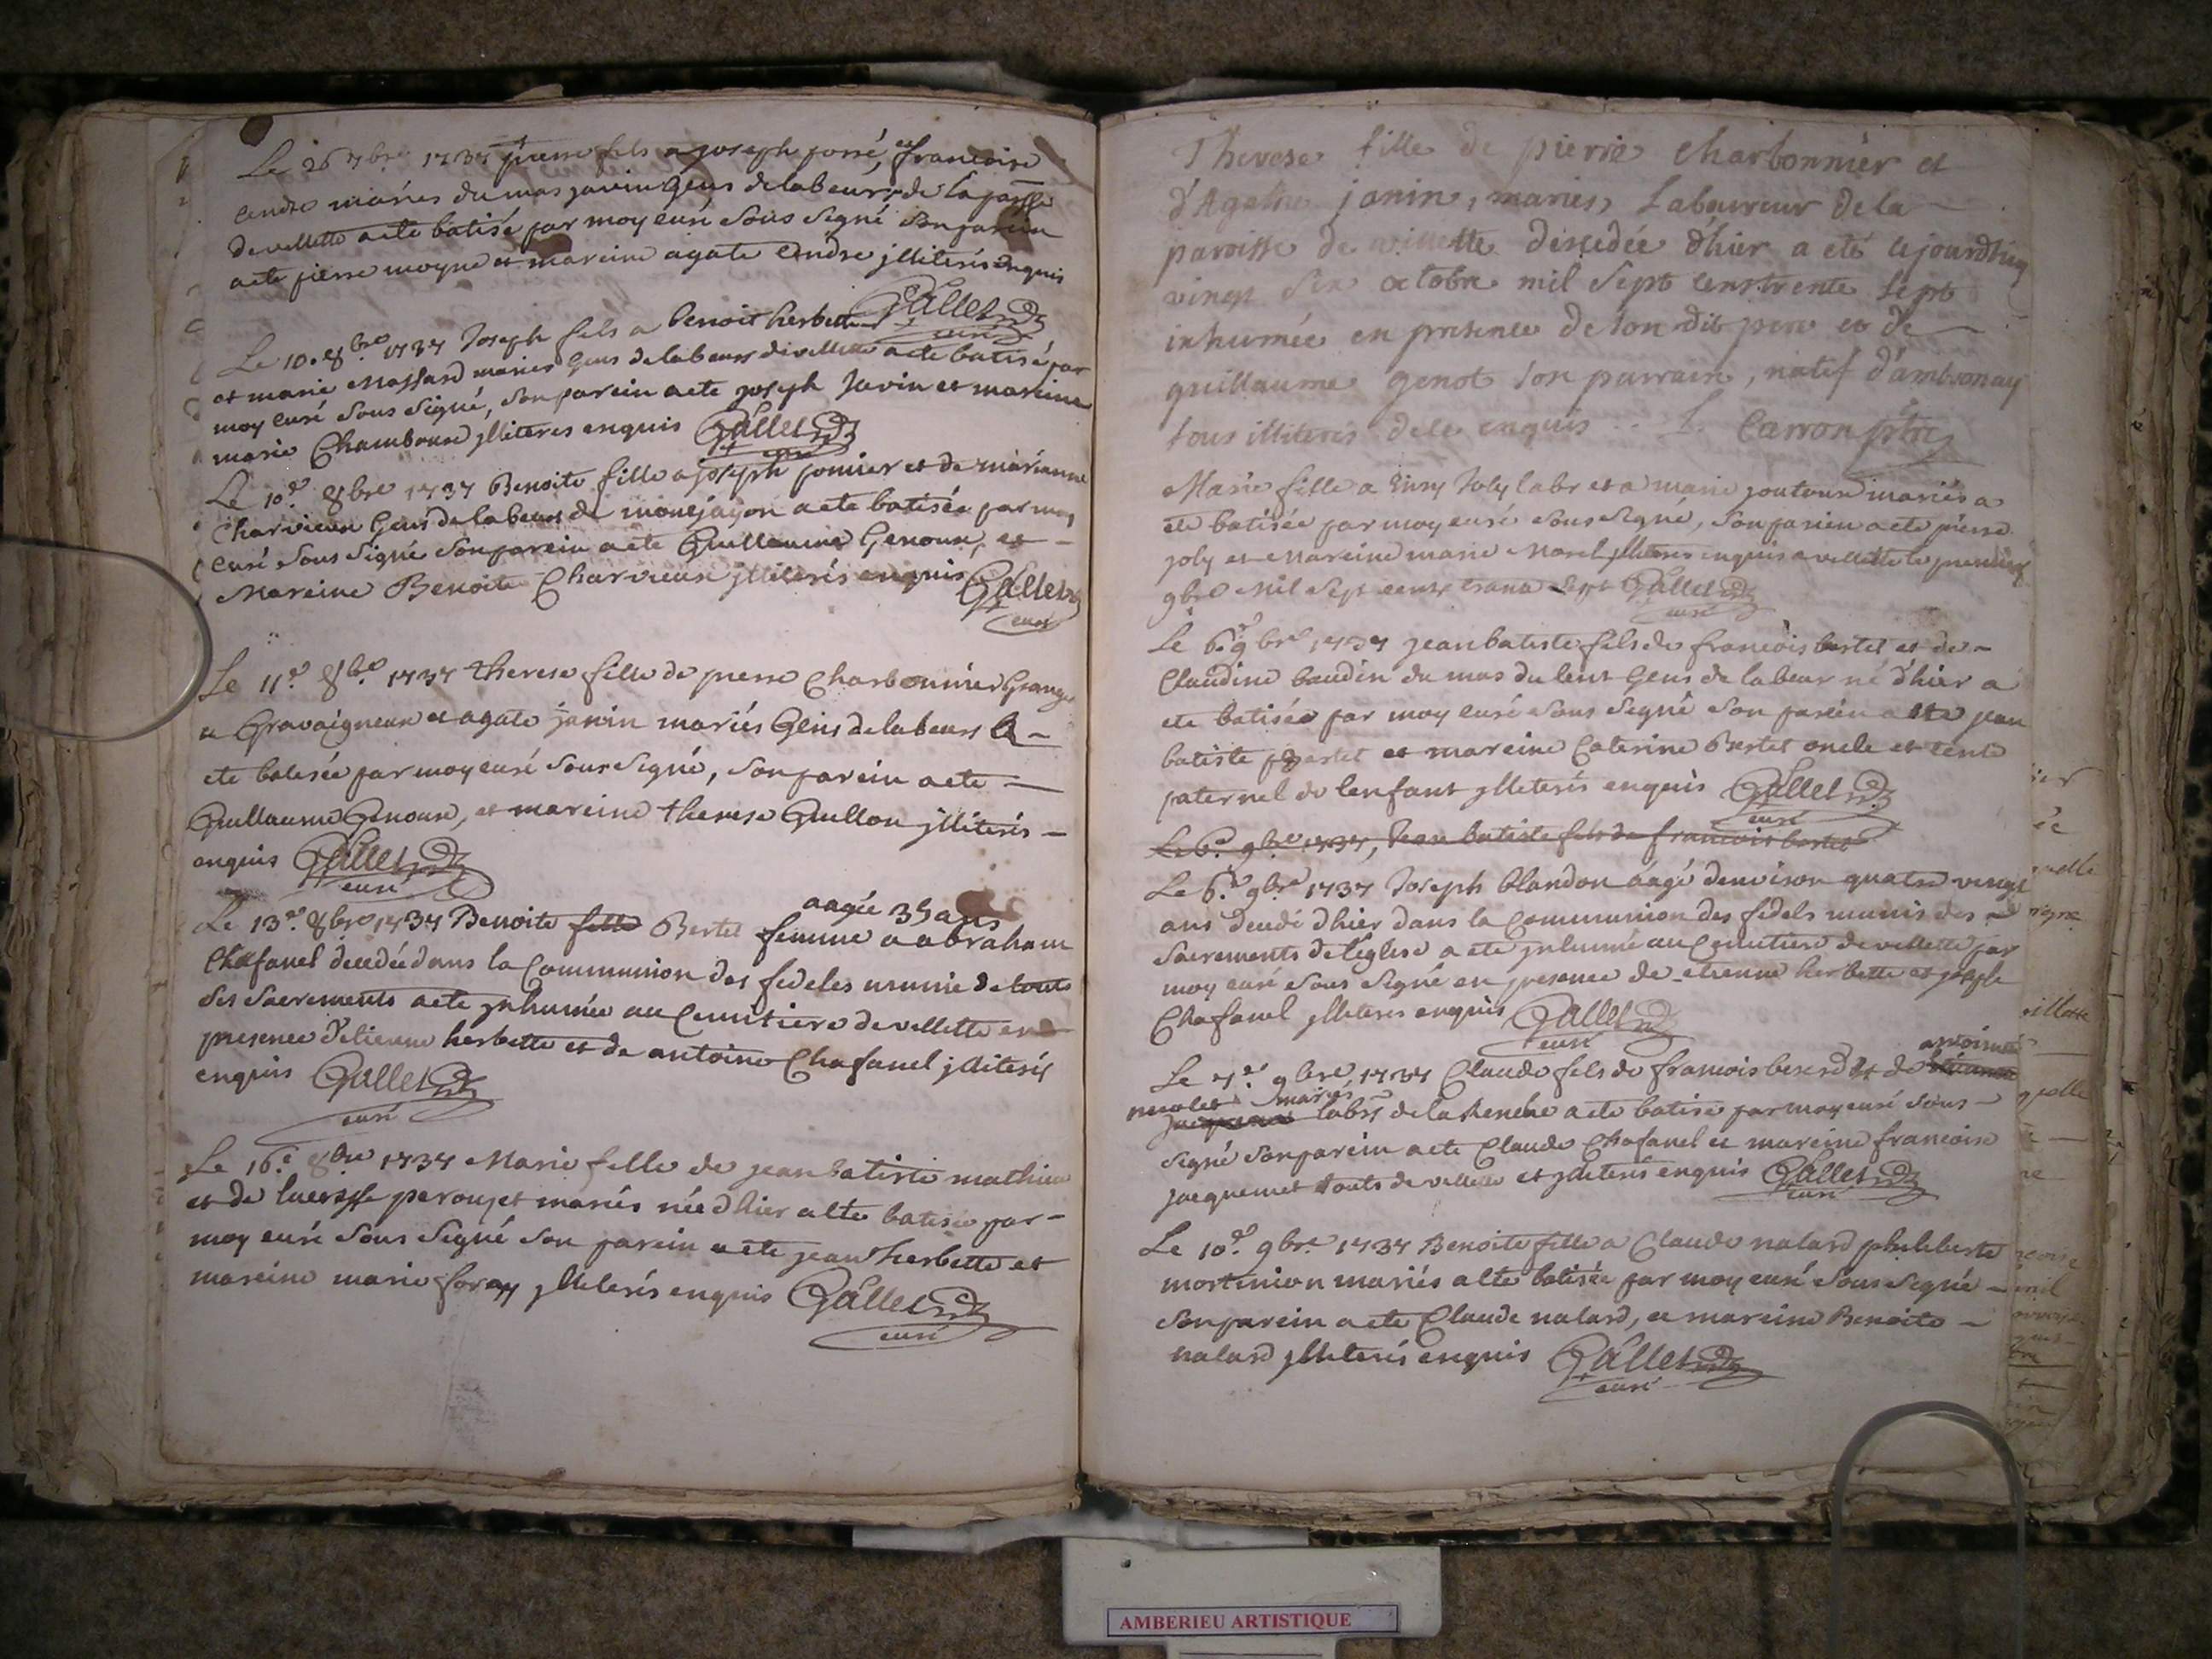 Le 26 7bre 1737 pierre fils a joseph jossé, et francoise
cendre mariés du mas javin gens delabeurs, de la
devellette aeté batisé par moy curé sous signé son parein
aete pierre moyne et mareine agate cendre jlliterés enquis
Gallet
curé
Le 10e 8bre 1737 Joseph fils a benoit herbette
et marie Massard mariés gens delabeurs devellette aete batisé par
moy curé sous signé, son parein aete joseph Javin et mareine
marie Chambouse jlliteres enquis Gallet
curé
Le 10e 8bre 1737 Benoite fille a joseph jomier et de marianne
Charvieux Gens delabeurs de aete batisée par moy
curé sous signé son parein aete Guillaume Genoux, et —
Mareine Benoite Charvieux jlliterés enquis Gallet
curé
Le 11e 8bre 1737 therese fille de pierre Charbonnier Granger
a et agate janin mariés Gens delabeurs a —
ete batisée par moy curé sous signé, son parein aete —
Guillaume Genoux, et mareine therese Guillon jlliterés —
enquis Gallet
curé
aagée 35 ans
Le 13e 8bre 1737 Benoite fille Bertet femme a abraham
Chafanel decedée dans la Communion des fideles munie de touts
ses sacrements aete jnhumée au Cemitiere de vellette en
presence d'etienne herbette et de antoine Chafanel jlliterés
enquis Gallet
curé
Le 16e 8bre 1737 Marie fille de jean batiste mathieu
et de peroujet mariés née d'hier a ete batisée par —
moy curé sous signé son parein aete jean herbette et
mareine marie foray jlliterés enquis Gallet
curé
Therese fille de pierre Charbonnier et
d'Agathe janin, mariés, Laboureur dela —
paroisse de villette decedée d'hier a eté cejourdhuy
vingt six octobre mil sept cens trente sept
inhumée en presence de son dit pere et de —
guillaume genot son parrain, natif d'ambronay
tous illiterés dele enquis .. Carron ptre
Marie fille a Joly labr et a marie mariés a
ete batisée par moy curé sous signé, son parien aete pierre
joly et Mareine marie Morel jlliterés enquis a vellette le premier
9bre Mil sept cents trante sept Gallet
curé
Le 6e 9bre 1737 jean batiste fils de francois bertet et de —
Claudine baudin du mas du lent Gens de labeur né d'hier a
ete batisée par moy curé sous signé son parein a ete jean
batiste bertet et mareine Caterine Bertet oncle et tente
paternel de lenfant jlleterés enquis Gallet
curé
Le 6e 9bre 1737, Jean batiste fils de francois bertet
Le 6e 9bre 1737 Joseph blandon aagé denvison quatre vingt
ans decedé dhier dans la Communion des fidels munis des —
sacrements de l'eglise a ete jnhumé au Cemitiere de vellette par
moy curé sous signé en presence de etienne herbette et joseph
Chafanel jlleteres enquis Gallet
curé
antoinette
Le 7e 9bre 1737 Claude fils de francois et de
mariés
labrs dela aete batisé par moy curé sous —
signé son parein aete Claude Chafanel et mareine francoise
jacquemet touts de vellette et jlleterés enquis Gallet
curé
Le 10e 9bre 1737 Benoite fille a Claude nalard philiberte
mortinion mariés a ete batisée par moy curé sous signé —
son parein aete Claude nalard, et mareine Benoite —
nalard jlleterés enquis Gallet
curé
AMBERIEU ARTISTIQUE